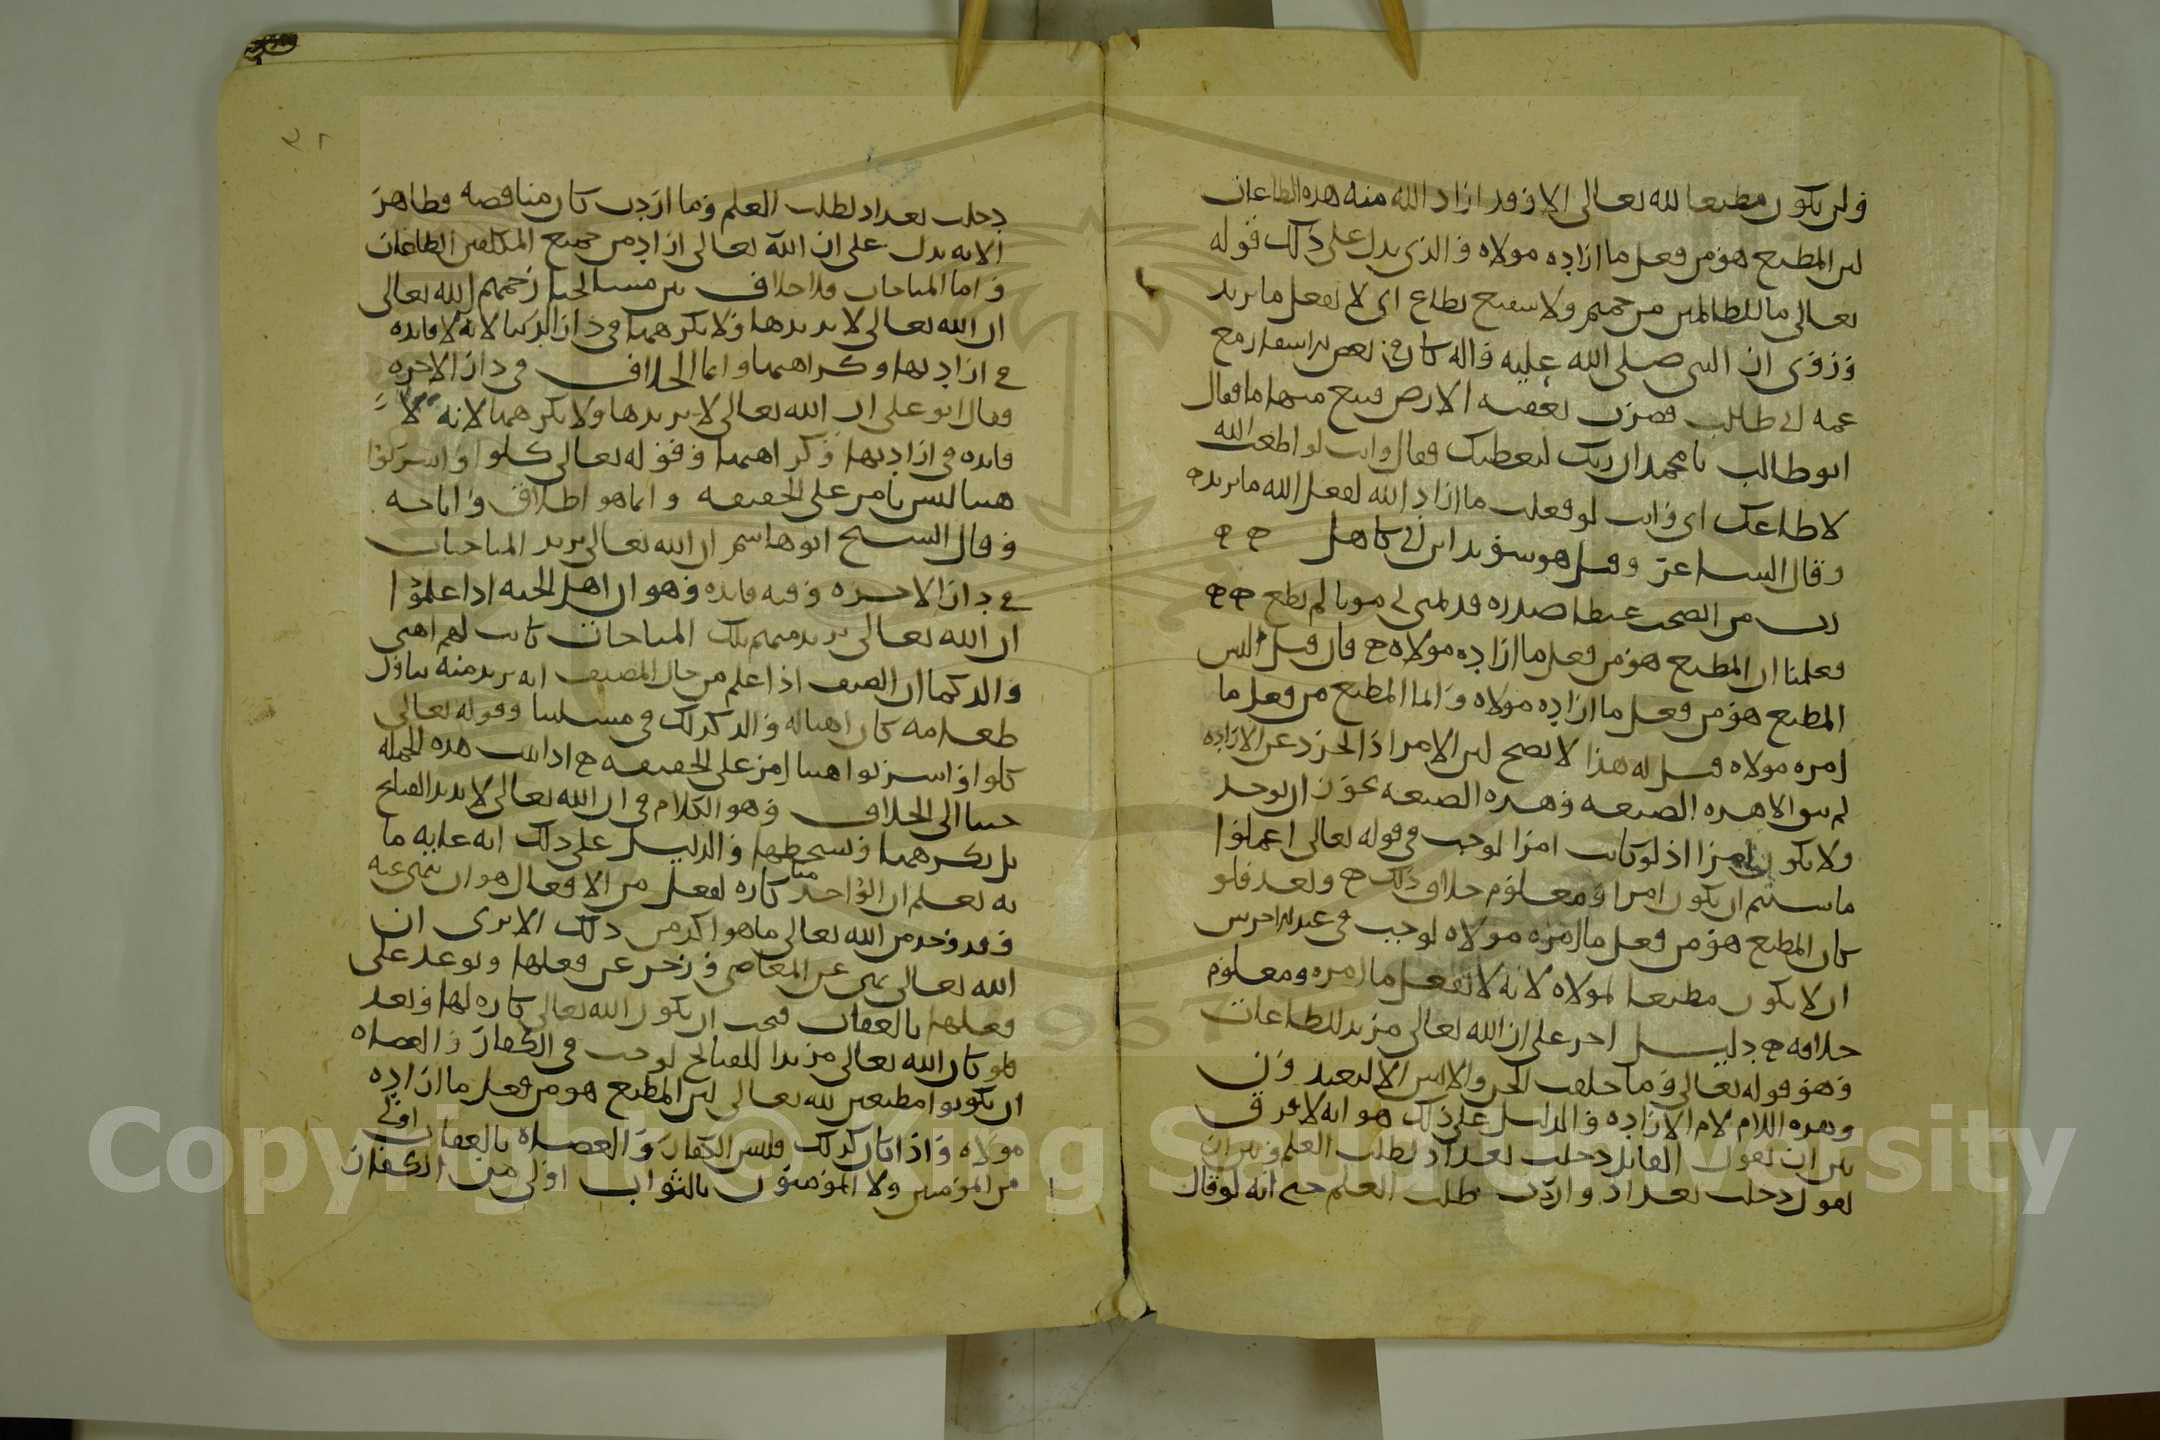 ولن يكون مطيعا لله تعالى الا وقد اراد الله منه هذه الطاعات
لان المطيع هو من فعل ما اراده مولاه والذي يدل على ذلك قوله
تعالى ما للظالمين من حميم ولا شفيع يطاع اي لا يفعل ما يريد
وروى ان النبي صلى الله عليه واله كان في بعض اسفاره مع
عمه ابي طالب فضرب بعقبه الارض فنبع منها ما فقال
ابو طالب يا محمد ان ربك ليعطيك فقال وانت لو اطعت الله
لاطاعك اي وانت لو فعلت ما اراد الله لفعل الله ما تريده
وقال الشاعر وقيل هو سويد ابن ابي كاهل
رب من انضجت غيظا صدره قد تمنى لي موتا لم يطع
فعلمنا ان المطيع هو من فعل ما اراده مولاه قال قيل اليس
المطيع هو من فعل ما اراده مولاه وانما المطيع من فعل ما
امره مولاه قيل له هذا لا يصح لان الامر اذا تجرد عن الارادة
لم يبق الا هذه الصيغه وهذه الصيغه يجوز ان توجد
ولا يكون امرا اذ لو كانت امرا لوجب في قوله تعالى اعملوا
ما شئتم ان يكون امرا ومعلوم خلاف ذلك وبعد فلو
كان المطيع هو من فعل ما امره مولاه لوجب في عبد اخرس
ان لا يكون مطيعا لمولاه لانه لا يفعل ما امره ومعلوم
خلافه دليل اخر على ان الله تعالى مريد للطاعات
وهو قوله تعالى وما خلقت الجن والانس الا ليعبدون
وهذه اللام لام الارادة والدليل على ذلك هو انه لا فرق
بين ان يقول القائل دخلت بغداد لطلب العلم وبين ان
يقول دخلت بغداد واردت طلب العلم حتى انه لو قال
٩٢
دخلت بغداد لطلب العلم وما اردت كان مناقضه فظاهر
الايه يدل على ان الله تعالى اراد من جميع المكلفين الطاعات
واما المباحات فلا خلاف بين مشايخنا رحمهم الله تعالى
ان الله تعالى لا يريدها ولا يكرهها في دار الدنيا لانه لا فايده
في ارادتها وكراهتها وانما الخلاف في دار الاخره
فقال ابو على ان الله تعالى لا يريدها ولا يكرهها لانه لا
فايده في ارادتها وكراهتها وقوله تعالى كلوا واشربوا
هنيا ليس بامر على الحقيقه وانما هو اطلاق واباحه
وقال الشيخ ابو هاشم ان الله تعالى يريد المباحات
في دار الاخره وفيه فايده وهو ان اهل الجنه اذا علموا
ان الله تعالى يريد منهم تلك المباحات كانت لهم اهنى
والذ كما ان الضيف اذا علم من حال المضيف انه يريد منه تناول
طعامه كان اهنا له والذ كذلك في مسلتنا وقوله تعالى
كلوا واشربوا هنيا امر على الحقيقه اذا ثبت هذه الجمله
جينا الى الخلاف وهو الكلام في ان الله تعالى لا يريد القبايح
بل يكرهها ويسخطها والدليل على ذلك انه غايه ما
به يعلم ان الواحد منا كاره لفعل من الافعال هو ان ينهى عنه
وقد وجد من الله تعالى ما هو اكد من ذلك الا ترى ان
الله تعالى نهى عن المعاصي وزجر عن فعلها وتوعد على
فعلها بالعقاب فيجب ان يكون الله تعالى كاره لها وبعد
فلو كان الله تعالى مريدا للقبايح لوجب في الكفار والعصاه
ان يكونوا مطيعين لله تعالى لان المطيع هو من فعل ما اراده
مولاه واذا كان كذلك فليس الكفار والعصاه بالعقاب اولى
من المؤمنين ولا المؤمنون بالثواب اولى من الكفار
Copyright © King Saud University
1957